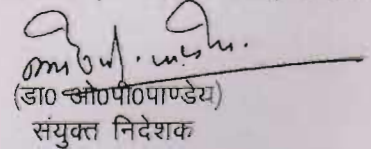 (डा० ओ०पी०पाण्डेय)
संयुक्त निदेशक